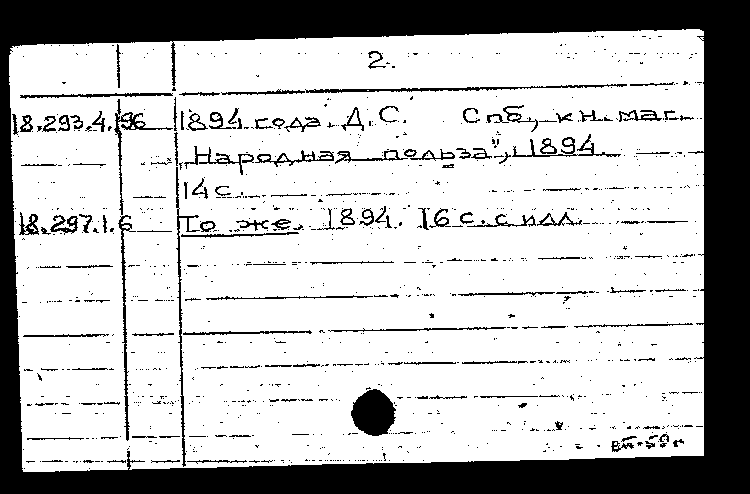 2.
18.293.4.196 1894 года. Д. С. Спб, кн. маг.
„Народная польза", 1894.
14 с.
18.297.1.6 То же. 1894. 16 с. с илл.